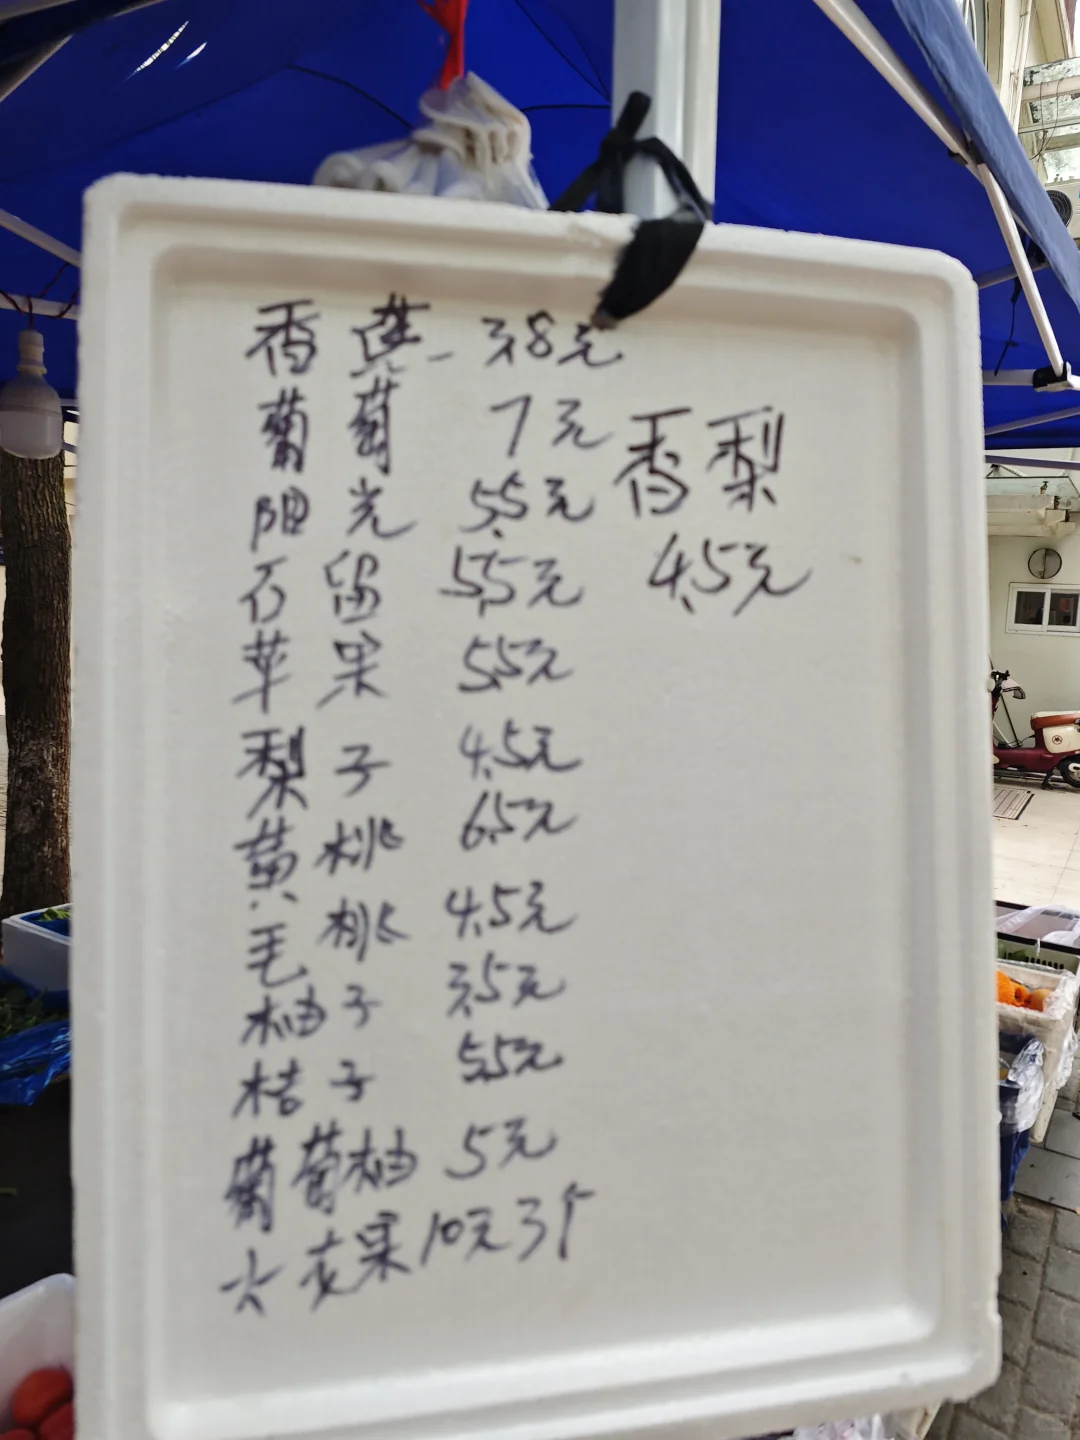 香黄 3.8元
葡萄 7元
阳光 5.5元
石留 5.5元
苹果 5.5元
梨子 4.5元
黄桃 6.5元
毛桃 4.5元
柚子 3.5元
桔子 5.5元
葡萄柚 5元
火龙果 10元3个
香梨
4.5元